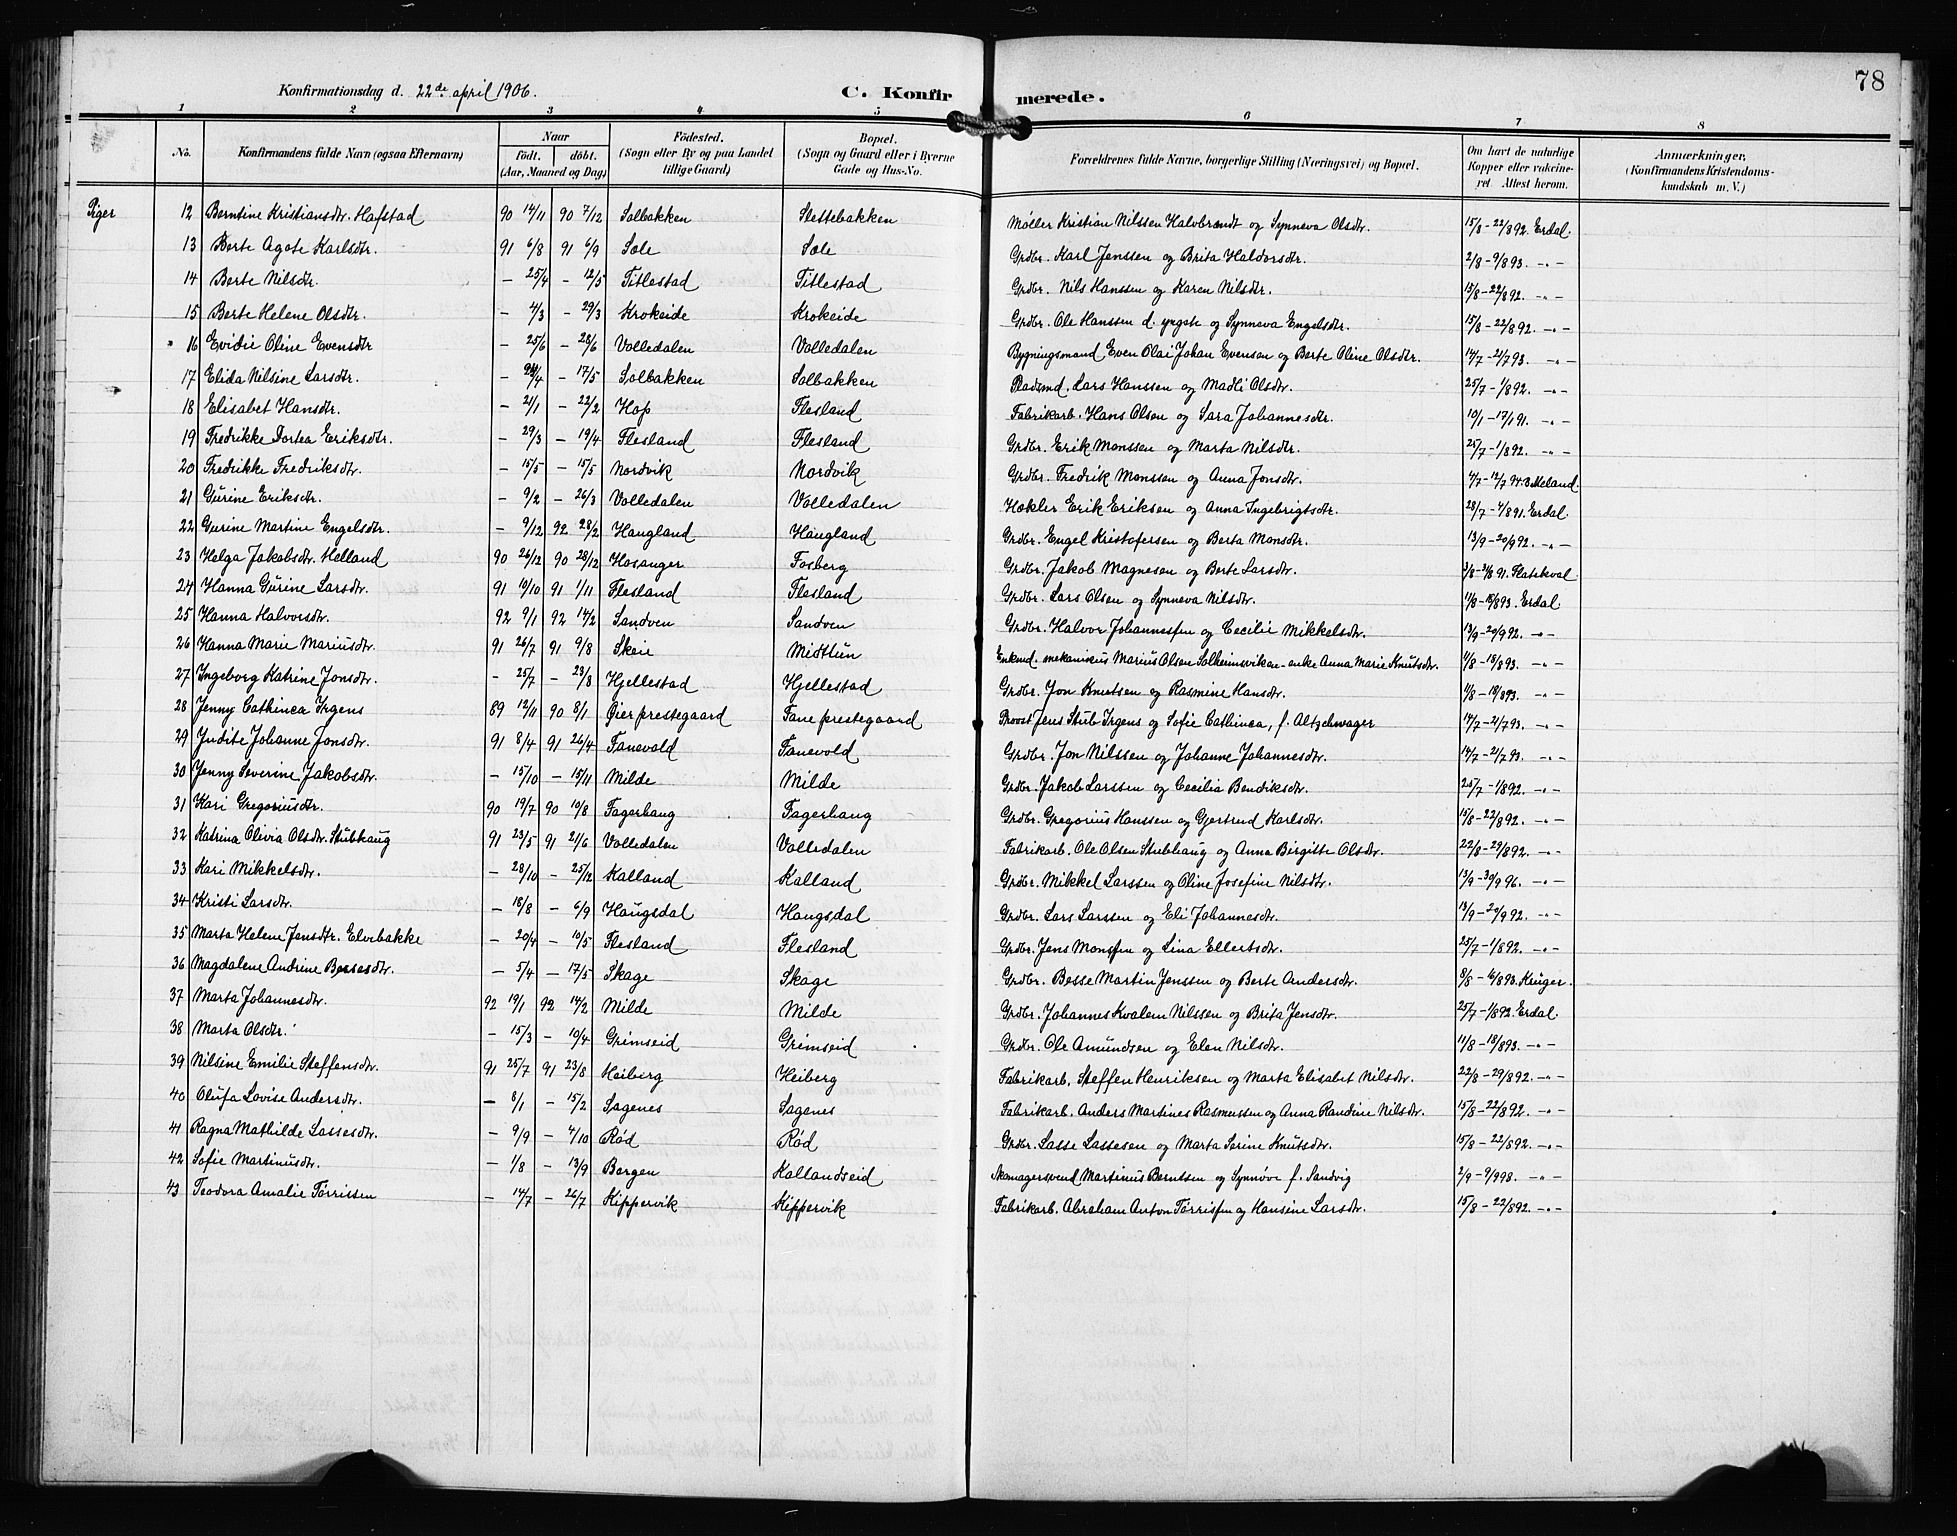 78
Konfirmationsdag d. 22de april 1906. C. Konfirmerede.
1 2 3 4 5 6 7 8
No. Konfirmandens fulde Navn (ogsaa Efternavn) Naar født. døbt. (Aar, Maaned og Dag) Födested. (Sogn eller By og paa Landet tillige Gaard) Bopæl. (Sogn og Gaard eller i Byerne Gade og Hus-No. Forældrenes fulde Navne, borgerlige Stilling (Næringsvei) og Bopæl. Om havt de naturlige Kopper eller vakcineret. Attest herom. Anmærkninger. (Konfirmandens Kristendomskundskab m. V.)
Piger 12 Berntine Kristiansdtr. Hafstad 90 14/11 90 7/12 Solbakken Slettebakken Møller Kristian Nilssen Halvbrendt og Synneva Olsdtr. 15/8-22/8 92. Erdal
13 Berte Agate Karlsdtr. 91 6/8 91 6/9 Sole Sole Grdbr. Karl Jenssen og Brita Haldorsdtr. 2/8-9/8 93. -"-
14 Berte Nilsdtr. - 25/4 - 12/5 Titlestad Titlestad Grdbr. Nils Hanssen og Karen Nilsdtr. 15/8-22/8 92. -"-
15 Berte Helene Olsdtr. - 4/3 - 29/3 Krokeide Krokeide Grdbr. Ole Hanssen d. yngste og Synneva Engelsdtr. 15/8-22/8 92. -"-
16 Evidie Oline Evensdtr - 25/6 - 28/6 Volledalen Volledalen Bygningsmand Even Olai Johan Evensen og Berte Oline Olsdtr. 14/7-21/7 93. -"-
17 Elida Nilsine Larsdtr. - 24/4 - 17/5 Solbakken Solbakken Pladsmd. Lars Hanssen og Madli Olsdtr. 25/7-1/8 92. -"-
18 Elisabet Hansdtr. - 21/1 - 22/2 Hop Flesland Fabrikarb. Hans Olsen og Sara Johannesdtr. 10/1-17/1 91. -"-
19 Fredrikke Dortea Eriksdtr. - 29/3 - 19/4 Flesland Flesland Grdbr. Erik Monssen og Marta Nilsdtr. 25/7-1/8 92. -"-
20 Fredrikke Fredriksdtr. - 15/5 - 15/5 Nordvik Nordvik Grdbr. Fredrik Monssen og Anna Jonsdtr. 4/7-12/7 94. Meland
21 Gurine Eriksdtr. - 9/2 - 26/3 Volledalen Volledalen Høkler Erik Eriksen og Anna Ingebrigtsdtr. 28/7-4/8 91. Erdal
22 Gurine Martine Engelsdtr. - 9/12 92 28/2 Haugland Haugland Grdbr. Engel Kristofersen og Berta Monsdtr. 13/9-20/9 92. -"-
23 Helga Jakobsdtr. Helland 90 26/12 90 28/12 Hosanger Fosberg Grdbr. Jakob Magnesen og Berte Larsdtr. 3/8-31/8 91. Flatekval
24 Hanna Gurine Larsdtr. 91 19/10 91 1/11 Flesland Flesland Grdbr. Lars Olsen og Synneva Nilsdtr. 11/8-18/8 93. Erdal
25 Hanna Halvorsdtr. 92 9/1 92 14/2 Sandven Sandven Grdbr. Halvor Johannessen og Cecilie Mikkelsdtr. 13/9-20/9 92. -"-
26 Hanna Marie Mariusdtr. 91 26/7 91 9/8 Skeie Midttun Enkmd. mekanikus Marius Olsen Solheimsviken - enke Anna Marie Knutsdtr. 11/8-18/8 93. -"-
27 Ingeborg Katrine Jonsdtr. - 25/7 - 23/8 Hjellestad Hjellestad Grdbr. Jon Knutsen og Rasmine Hansdtr. 11/8-18/8 93. -"-
28 Jenny Cathinca Irgens 89 12/11 90 8/1 Øier prestegaard Fane prestegaard Provst Jens Stub Irgens og Sofie Cathinca, f. Altzchwager 14/7-21/7 93. -"-
29 Judite Johanne Jonsdtr. 91 8/4 91 26/4 Fanevold Fanevold Grdbr. Jon Nilssen og Johanne Johannesdtr. 14/7-21/7 93. -"-
30 Jenny Severine Jakobsdtr. - 15/10 - 15/11 Milde Milde Grdbr. Jakob Larssen og Cecilia Bendiksdtr. 25/7-1/8 92. -"-
31 Kari Gregoriusdtr. 90 19/7 90 10/8 Fagerhaug Fagerhaug Grdbr. Gregorius Hanssen og Gjertrud Karlsdtr. 15/8-22/8 92. -"-
32 Katrina Olivia Olsdtr. Stubhaug 91 23/5 91 21/6 Volledalen Volledalen Fabrikarb. Ole Olsen Stubhaug og Anna Birgitte Olsdtr. 22/8-29/8 92. -"-
33 Kari Mikkelsdtr. - 28/10 - 25/12 Kalland Kalland Grdbr. Mikkel Larssen og Oline Josefine Nilsdtr. 13/9-30/9 96. -"-
34 Kristi Larsdtr. - 18/8 - 6/9 Haugsdal Haugsdal Grdbr. Lars Larssen og Eli Johannesdtr. 13/9-20/9 92. -"-
35 Marta Helene Jensdtr. Elvebakke - 20/4 - 10/5 Flesland Flesland Grdbr. Jens Monssen og Lina Ellertsdtr. 25/7-1/8 92. -"-
36 Magdalene Andrine Bessesdtr. - 5/4 - 17/5 Skage Skage Grdbr. Besse Martin Jenssen og Berte Andersdtr. 8/8-16/8 93. Krüger.
37 Marta Johannesdtr. 92 19/1 92 14/2 Milde Milde Grdbr. Johannes Kvalem Nilssen og Brita Jensdtr. 25/7-1/8 92. Erdal
38 Marta Olsdtr. - 15/3 - 10/4 Grimseid Grimseid Grdbr. Ole Amundsen og Elen Nilsdtr. 11/8-18/8 93. -"-
39 Nilsine Emilie Steffensdtr. 91 25/7 91 23/8 Heiberg Heiberg Fabrikarb. Steffen Henriksen og Marta Elisabet Nilsdtr. 22/8-29/8 92. -"-
40 Olufa Lovise Andersdtr. - 8/1 - 15/2 Sagenes Sagenes Fabrikarb. Anders Martines Rasmussen og Anna Randine Nilsdtr. 15/8-22/8 92. -"-
41 Ragna Mathilde Lassesdtr. - 9/9 - 4/10 Rød Rød Grdbr. Lasse Lassesen og Marta Serine Knutsdtr. 15/8-22/8 92. -"-
42 Sofie Martinusdtr. - 1/8 - 13/9 Bergen Kallandseid Skomagersvend Martinus Berntsen og Synnøve f. Sandvig 2/9-9/9 98. -"-
43 Teodora Amalie Tørrissen - 14/7 - 26/7 Kippervik Kippervik Fabrikarb. Abraham Anton Tørrissen og Hansine Larsdtr. 15/8-22/8 92. -"-